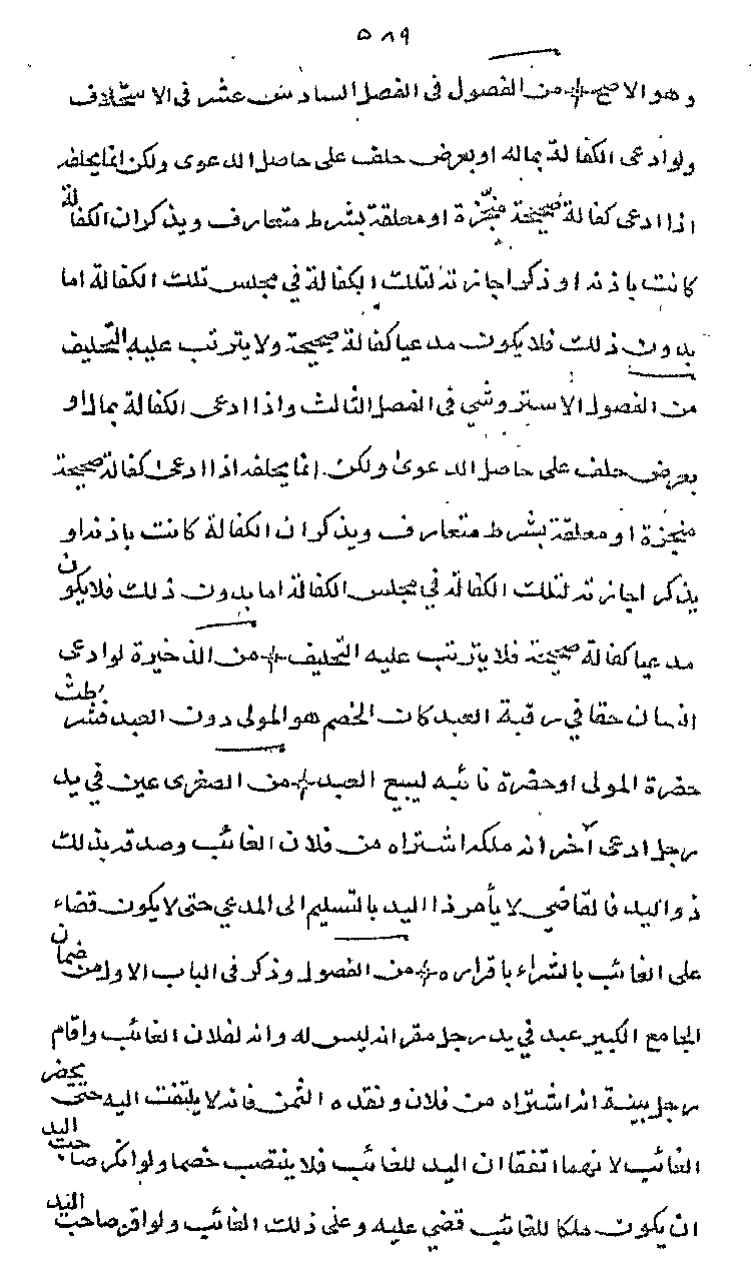 ٥٨٩
وهو الاصح + من الفصول فى الفصل السادس عشر فى الاستحلاف
ولو ادعى الكفالة بماله او بعرض حلف على حاصل الدعوى ولكن انما يحلفه
اذا ادعى كفالة صحيحة منجزة او معلقة بشرط متعارف ويذكر ان الكفالة
كانت باذنه او ذكر اجازته لتلك الكفالة في مجلس تلك الكفالة اما
بدون ذلك فلا يكون مدعيا كفالة صحيحة ولا يترتب عليه التحليف
من الفصول الاستروشي فى الفصل الثالث واذا ادعى الكفالة بمال او
بعرض حلف على حاصل الدعوى ولكن انما يحلفه اذا ادعى كفالة صحيحة
منجزة او معلقة بشرط متعارف ويذكر ان الكفالة كانت باذنه او
يذكر اجازته لتلك الكفالة في مجلس الكفالة اما بدون ذلك فلا يكون
مدعيا كفالة صحيحة فلا يترتب عليه التحليف + من الذخيرة لو ادعى
انسان حقا في رقبة العبد كان الخصم هو المولى دون العبد فيشترط
حضرة المولى او حضرة نائبه ليبيع العبد + من الصغرى عين في يد
رجل ادعى آخر انه ملكه اشتراه من فلان الغائب وصدقه بذلك
ذو اليد فالقاضي لا يأمر ذا اليد بالتسليم الى المدعي حتى لا يكون قضاء
على الغائب بالشراء باقراره + من الفصول وذكر فى الباب الاول من ضمان
الجامع الكبير عبد في يد رجل مقر انه ليس له وانه لفلان الغائب واقام
رجل بينة انه اشتراه من فلان ونقده الثمن فانه لا يلتفت اليه حتى يحضر
الغائب لانهما اتفقا ان اليد للغائب فلا ينتصب خصما ولو انكر صاحب اليد
ان يكون ملكا للغائب قضي عليه وعلى ذلك الغائب ولو اقر صاحب اليد